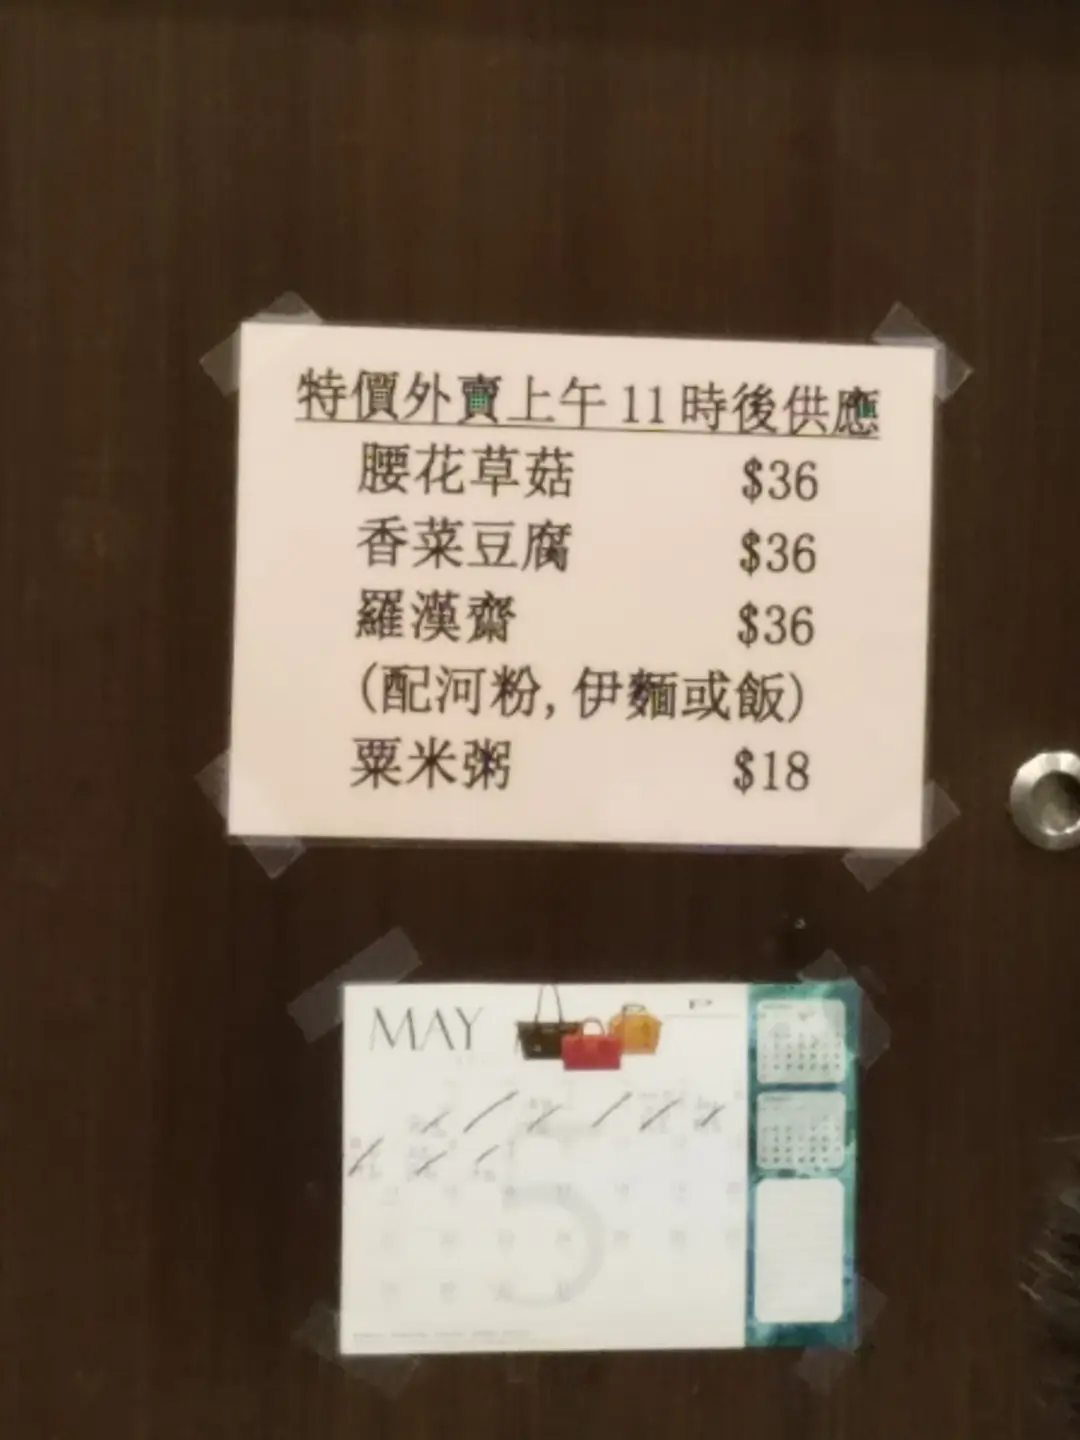 特價外賣上午11時後供應
腰花草菇 $36
香菜豆腐 $36
羅漢齋 $36
(配河粉,伊麵或飯)
粟米粥 $18
MAY
5